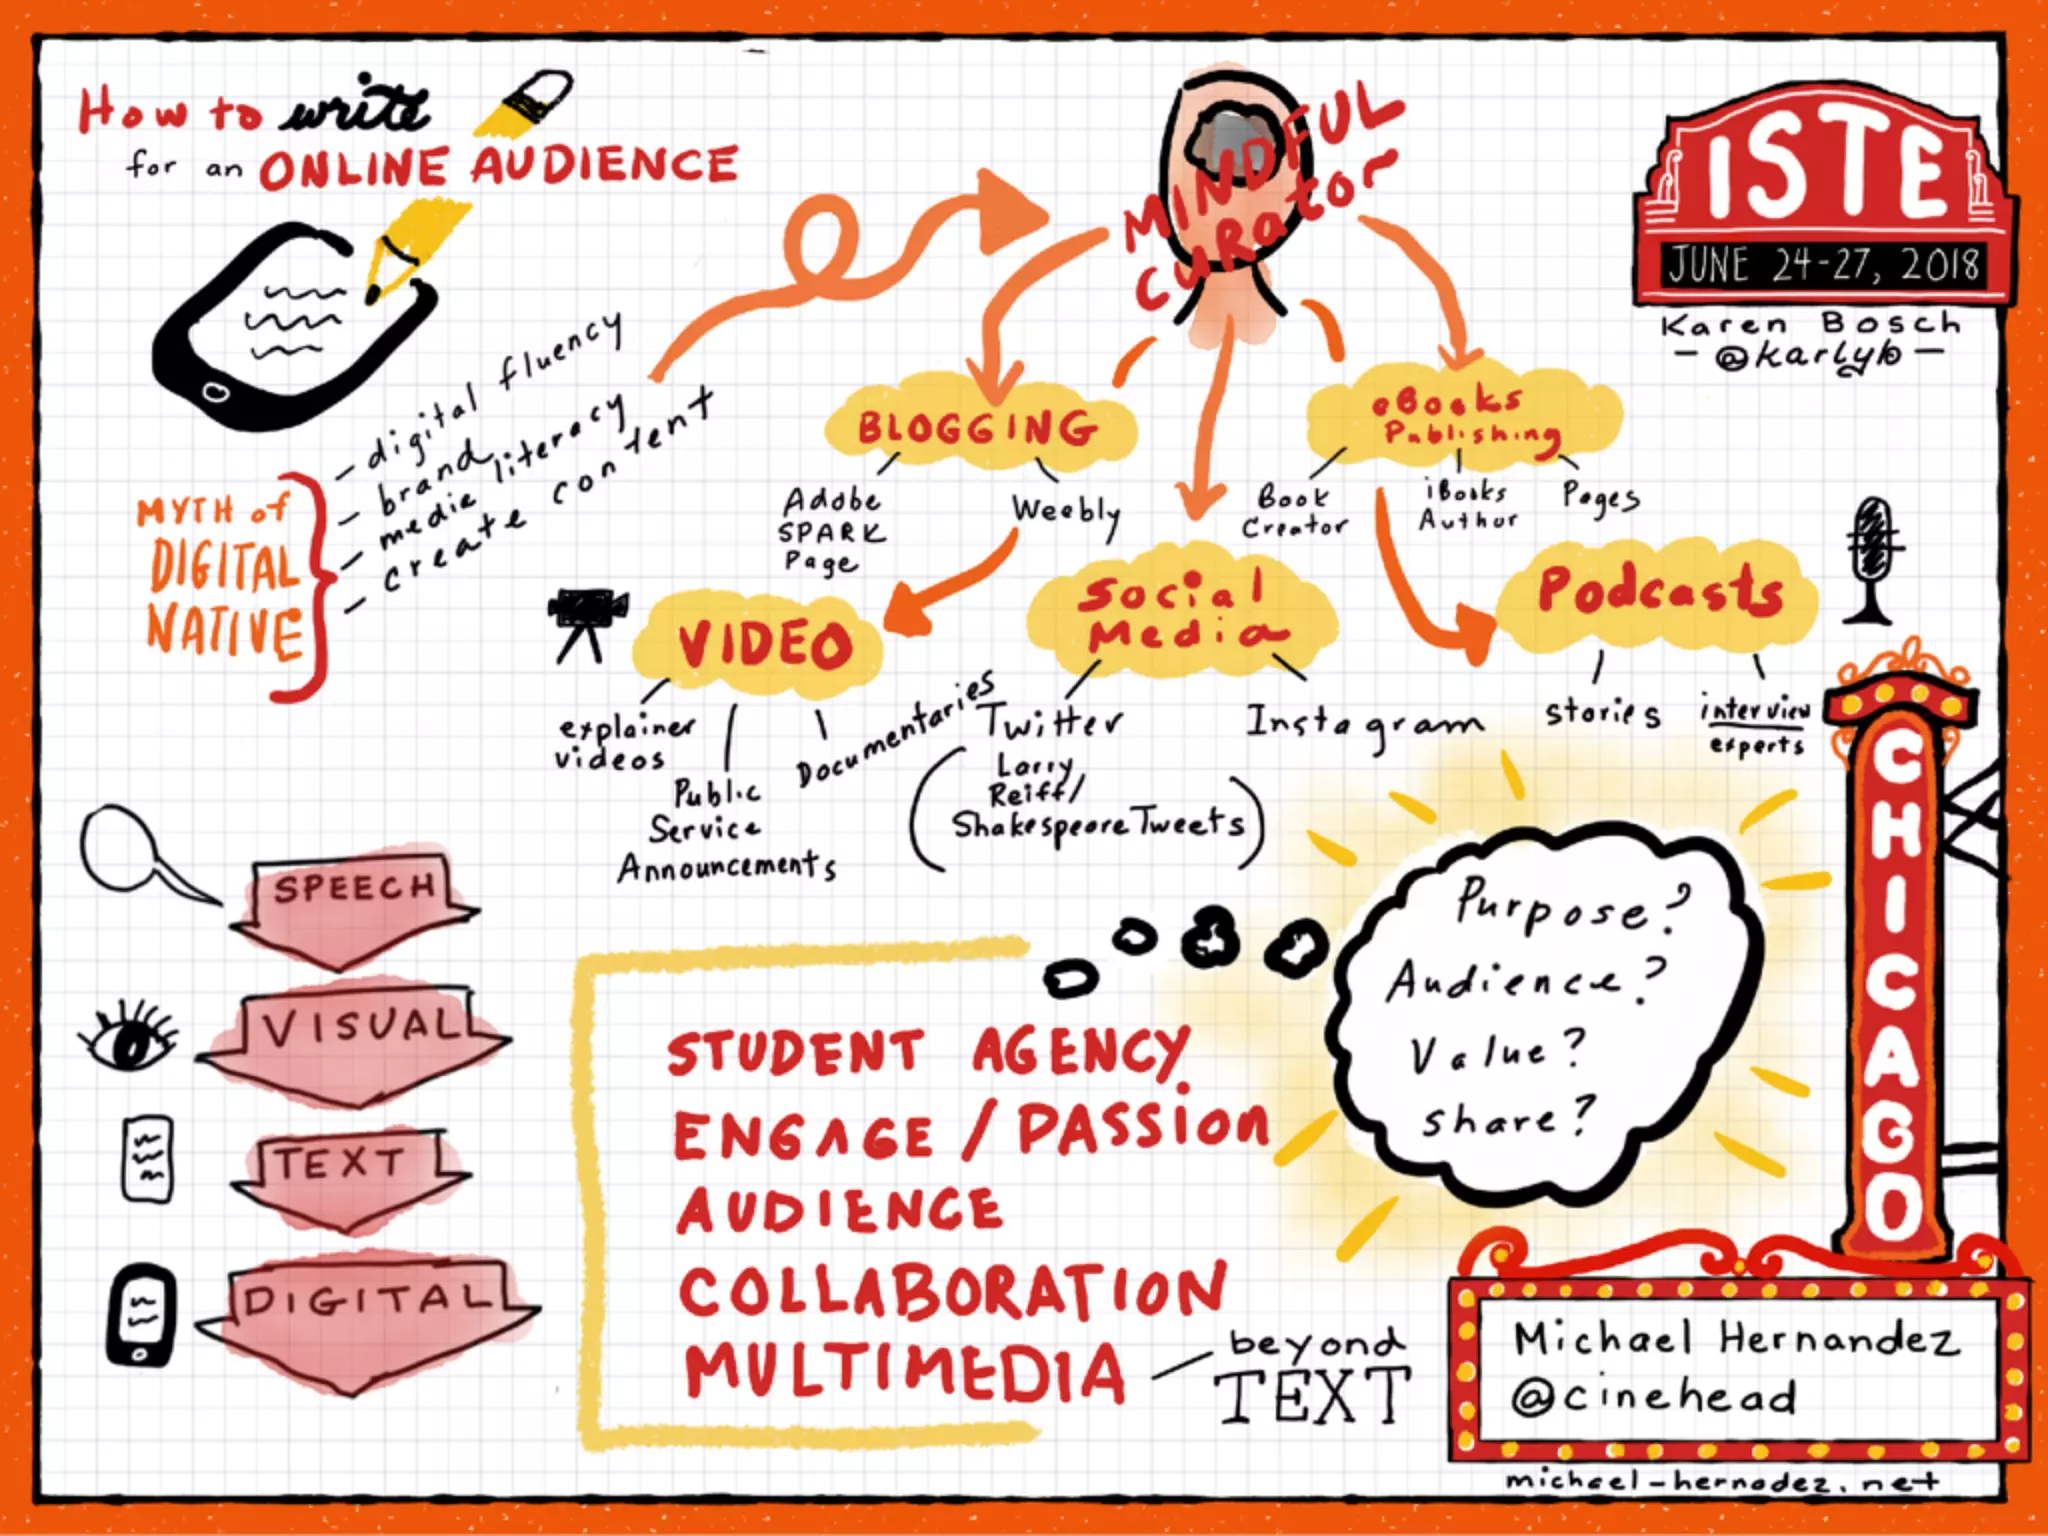 How to write
for an ONLINE AUDIENCE
MINDFUL
CURator
ISTE
JUNE 24-27, 2018
Karen Bosch
- @karlyb -
MYTH of
DIGITAL
NATIVE
- digital fluency
- brand
- media literacy
- create content
BLOGGING
Adobe
SPARK
Page
Weebly
eBooks
Publishing
Book
Creator
iBooks
Author
Pages
VIDEO
explainer
videos
Public
Service
Announcements
Documentaries
Social
Media
Twitter
(Larry
Reiff/
Shakespeare Tweets)
Instagram
Podcasts
stories
interview
experts
SPEECH
VISUAL
TEXT
DIGITAL
STUDENT AGENCY
ENGAGE / PASSION
AUDIENCE
COLLABORATION
MULTIMEDIA
- beyond
TEXT
Purpose?
Audience?
Value?
share?
CHICAGO
Michael Hernandez
@cinehead
michael-hernadez.net